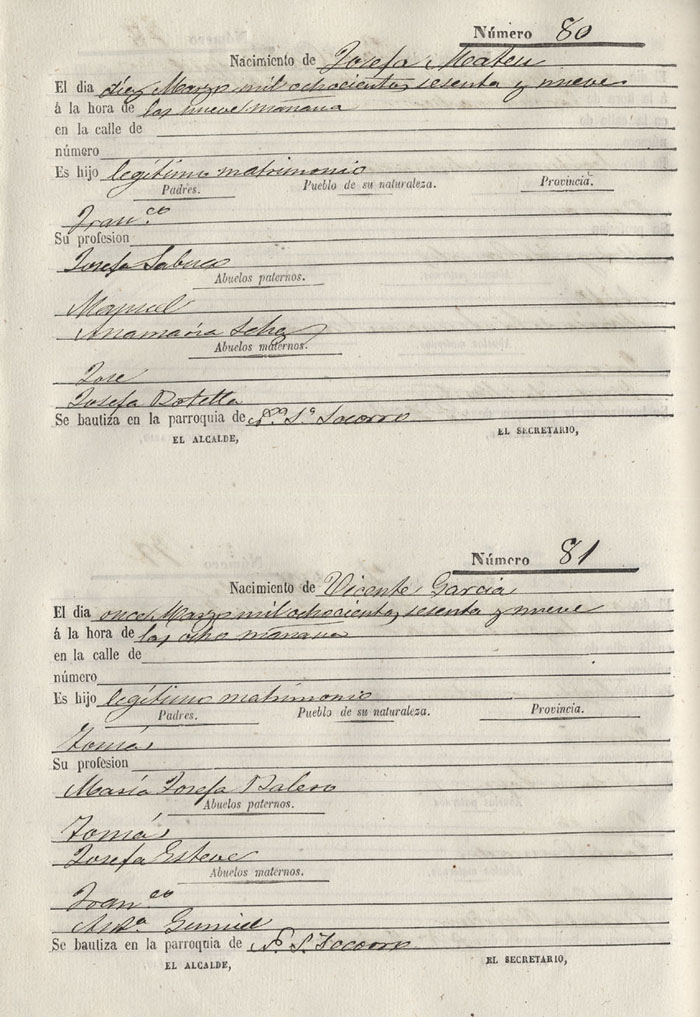 Número 80
Nacimiento de Josefa Mateu
El dia diez Marzo mil ochocientos sesenta y nueve
á la hora de las nueve mañana
en la calle de
número
Es hijo legítimo matrimonio
Padres. Pueblo de su naturaleza. Provincia.
Fran.co
Su profesion
Josefa
Abuelos paternos.
Manuel
Anamaria
Abuelos maternos.
Jose
Josefa Botella
Se bautiza en la parroquia de Socorro
EL ALCALDE, EL SECRETARIO,
Número 81
Nacimiento de Vicente Garcia
El dia once Marzo mil ochocientos sesenta y nueve
á la hora de las ocho mañana
en la calle de
número
Es hijo legítimo matrimonio
Padres. Pueblo de su naturaleza. Provincia.
Tomás
Su profesion
María Josefa
Abuelos paternos.
Tomás
Josefa Esteve
Abuelos maternos.
Fran.co
Se bautiza en la parroquia de N. S. Socorro
EL ALCALDE, EL SECRETARIO,